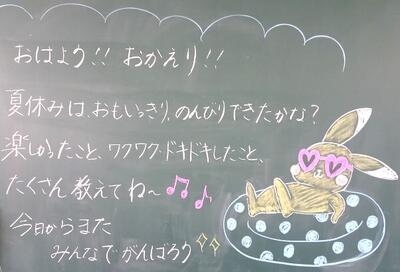 おはよう!! おかえり!!
夏休みは、おもいっきり、のんびりできたかな?
楽しかったこと、ワクワク・ドキドキしたこと、
たくさん教えてね〜♫♪
今日からまた
みんなでがんばろう✨